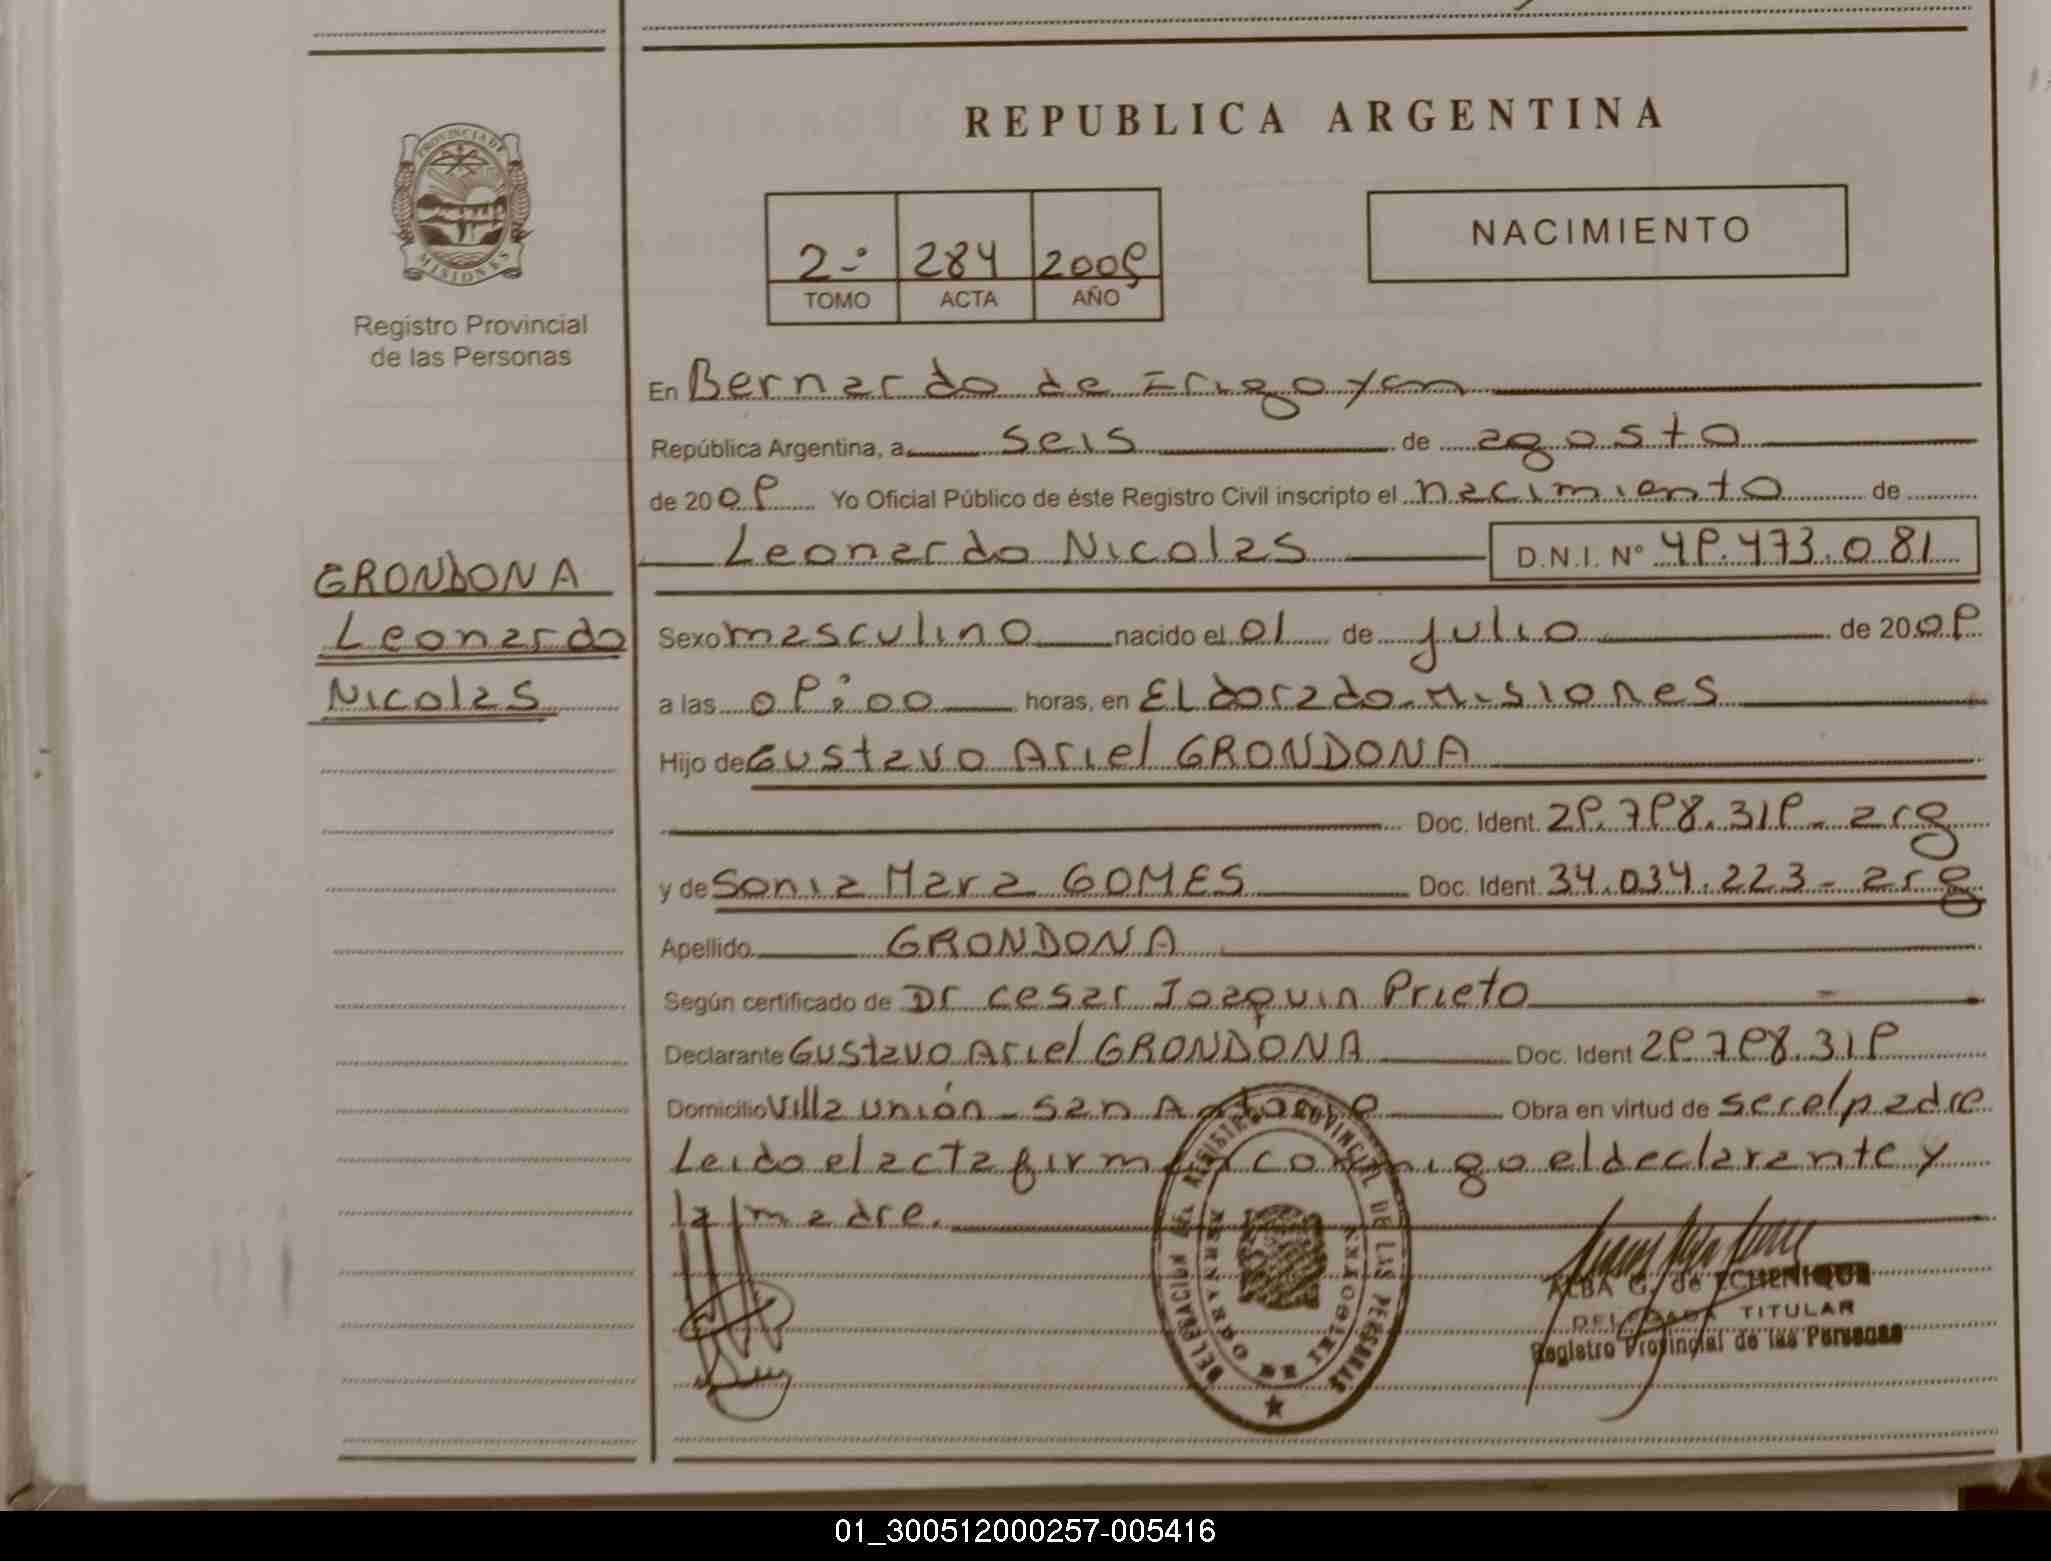 REPUBLICA ARGENTINA
PROVINCIA DE
MISIONES
Registro Provincial
de las Personas
2º 284 2009
TOMO ACTA AÑO
NACIMIENTO
En Bernardo de Irigoyen
República Argentina, a seis de agosto
de 2009 Yo Oficial Público de éste Registro Civil inscripto el nacimiento de
Leonardo Nicolas D.N.I. Nº 49.473.081
GRONDONA
Leonardo
Nicolas
Sexo masculino nacido el 01 de julio de 2009
a las 09:00 horas, en ELdorado-Misiones
Hijo de Gustavo Ariel GRONDONA
Doc. Ident. 29.798.319- arg
y de Sonia Mara GOMES Doc. Ident. 34.034.223- arg
Apellido GRONDONA
Según certificado de Dr Cesar Joaquin Prieto
Declarante Gustavo Ariel GRONDONA Doc. Ident 29.798.319
Domicilio Villa unión - San Antonio Obra en virtud de ser el padre
Leido el acta firman conmigo el declarante y
la madre.
DELEGACIÓN DEL REGISTRO PROVINCIAL DE LAS PERSONAS
BERNARDO DE IRIGOYEN
ALBA G. de ECHENIQUE
DELEGADA TITULAR
Registro Provincial de las Personas
01_300512000257-005416